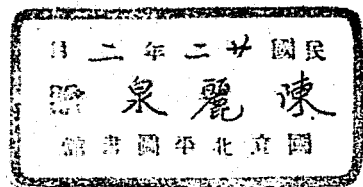 民國廿二年二月
陳麗泉
國立北平圖書館